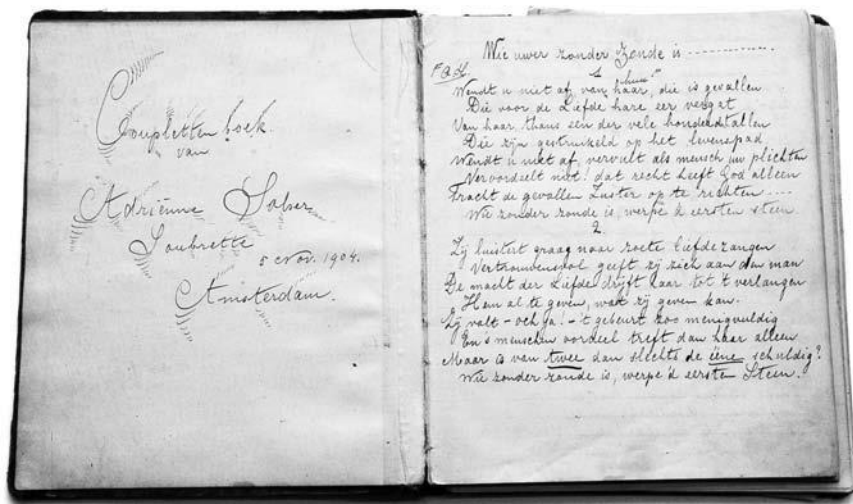 Coupletten boek.
van
Adriënne Solser
Soubrette
5 Nov. 1904.
Amsterdam.
Wie uwer zonder Zonde is
1
Wendt u niet af van haar, die is gevallen
Die voor de Liefde hare eer vergat
Van haar, thans een der vele honderdtallen
Die zijn gestruikeld op het levenspad
Wendt u niet af, vervult als mensch uw plichten
Veroordeelt niet! dat recht heeft God alleen
Tracht de gevallen Zuster op te richten ....
Wie zonder zonde is, werpe 'd eersten steen.
2.
Zij luistert graag naar zoete liefdezangen
Vertrouwensvol geeft zij zich aan den man
De macht der Liefde drijft haar tot 't verlangen
Hem al te geven, wat zij geven kan.
Zij valt - och ja! - 't gebeurt zoo menigvuldig
En 's menschen oordeel treft dan haar alleen
Maar is van twee dan slechts de ééne schuldig?
Wie zonder zonde is, werpe 'd eersten Steen.